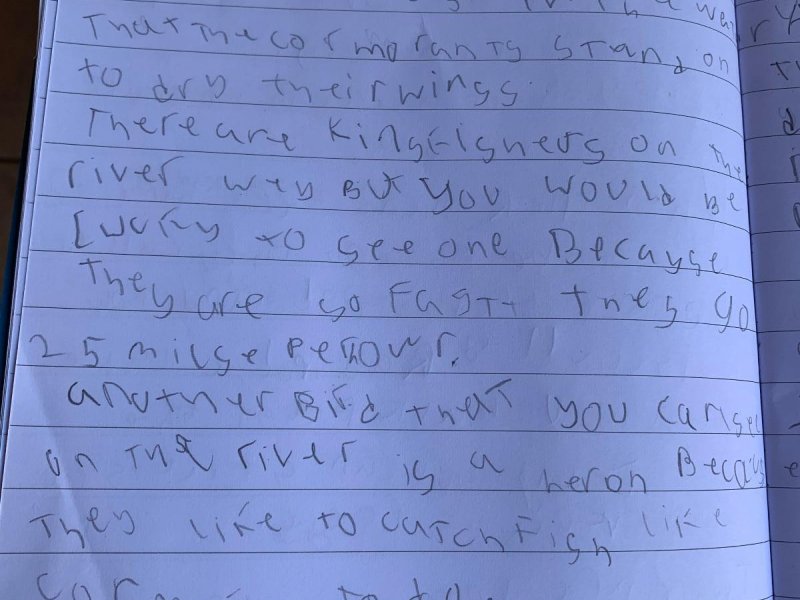 That the cormorants stand on
to dry their wings.
There are Kingfishers on the
river wey But you would be
Lucky to see one Because
They are so Fast they go
25 milse per hour.
another Bird that you can see
on The river is a heron Becaus
They like to catch Fish like